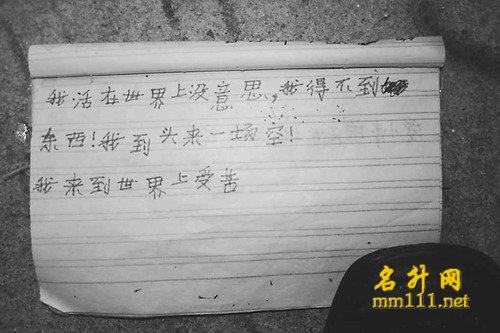 我活在世界上没意思,我得不到
东西!我到头来一场空!
我来到世界上受苦
名升网
mm111.net